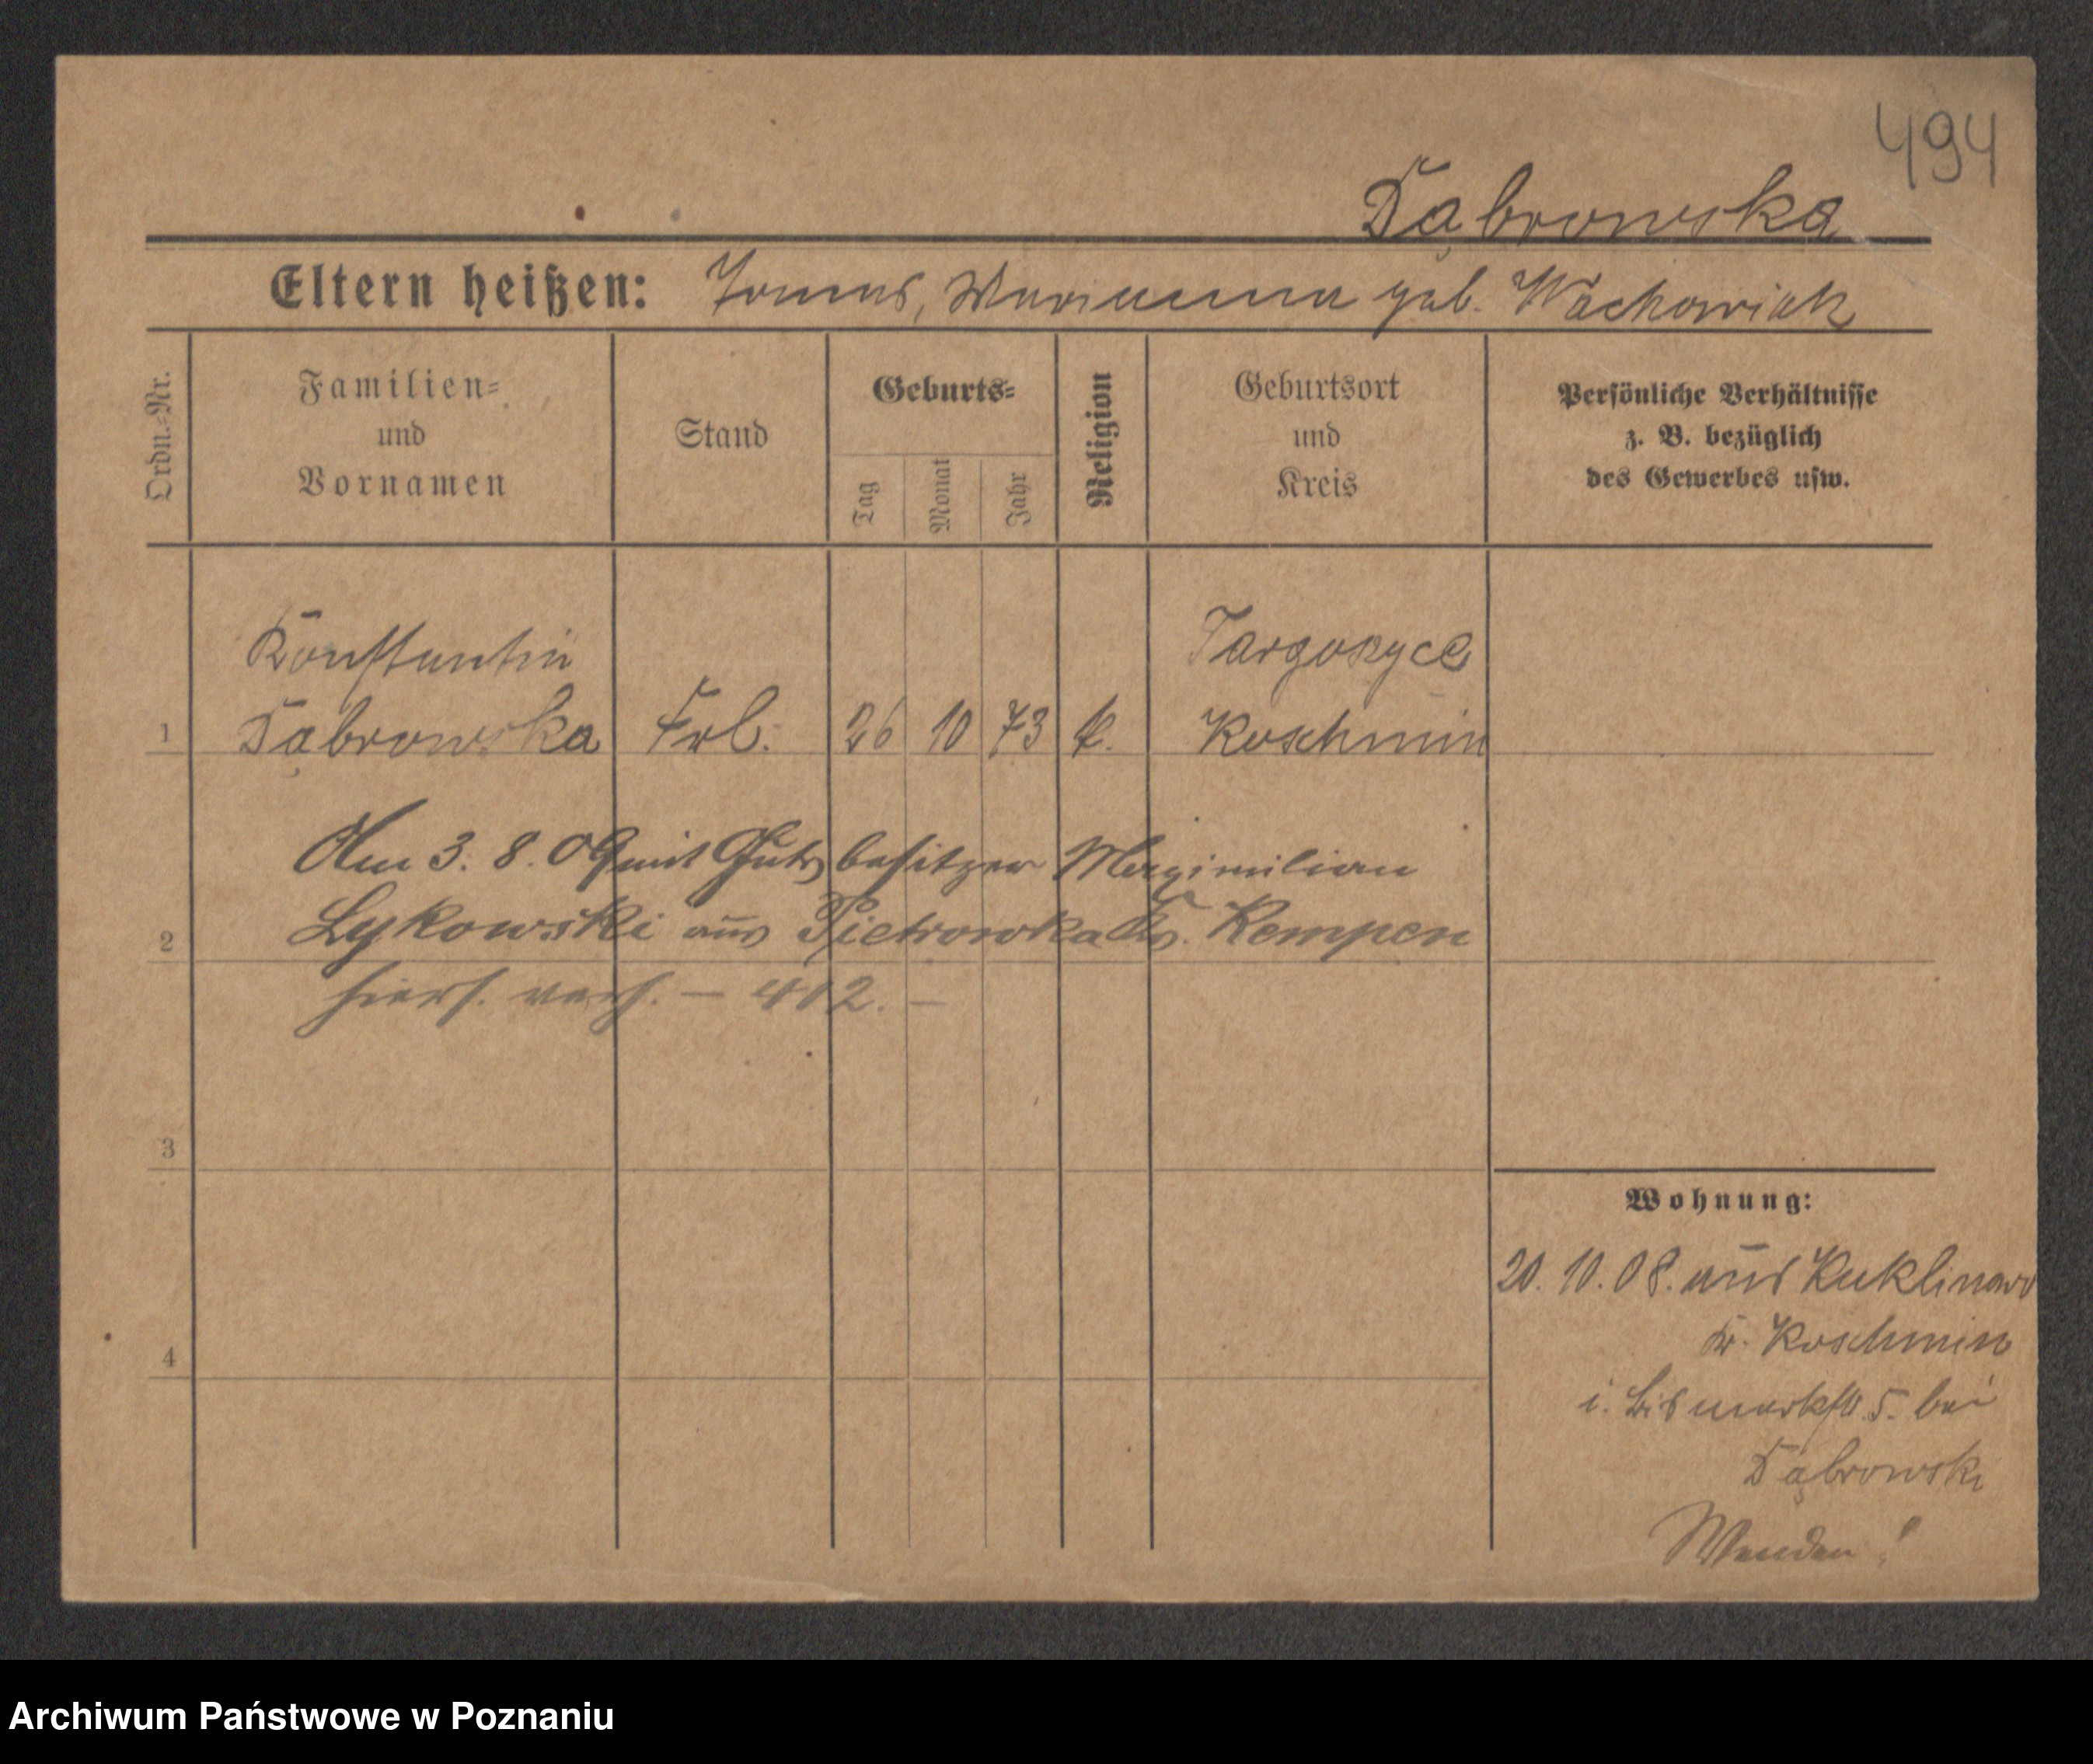 494
Dąbrowska
Eltern heißen: Tomas, Marianna geb. Wachowiak
Ordn.=Nr.
Familien=
und
Vornamen
Stand
Geburts=
Tag
Monat
Jahr
Religion
Geburtsort
und
Kreis
Persönliche Verhältnisse
z. B. bezüglich
des Gewerbes usw.
Konstantin Targoszyce
1 Dąbrowska Frl. 26 10 73 k. Koschmin
Am 3. 8. 09 mit Gutsbesitzer Maximilian
2 Lykowski aus Pietrowka Kr. Kempen
hiers. verh. — 412. —
3
Wohnung:
20. 10. 08. aus Kuklinowo
Kr. Koschmin
4
i. Bismarkstr. 5. bei
Dąbrowski
Wenden!
Archiwum Państwowe w Poznaniu